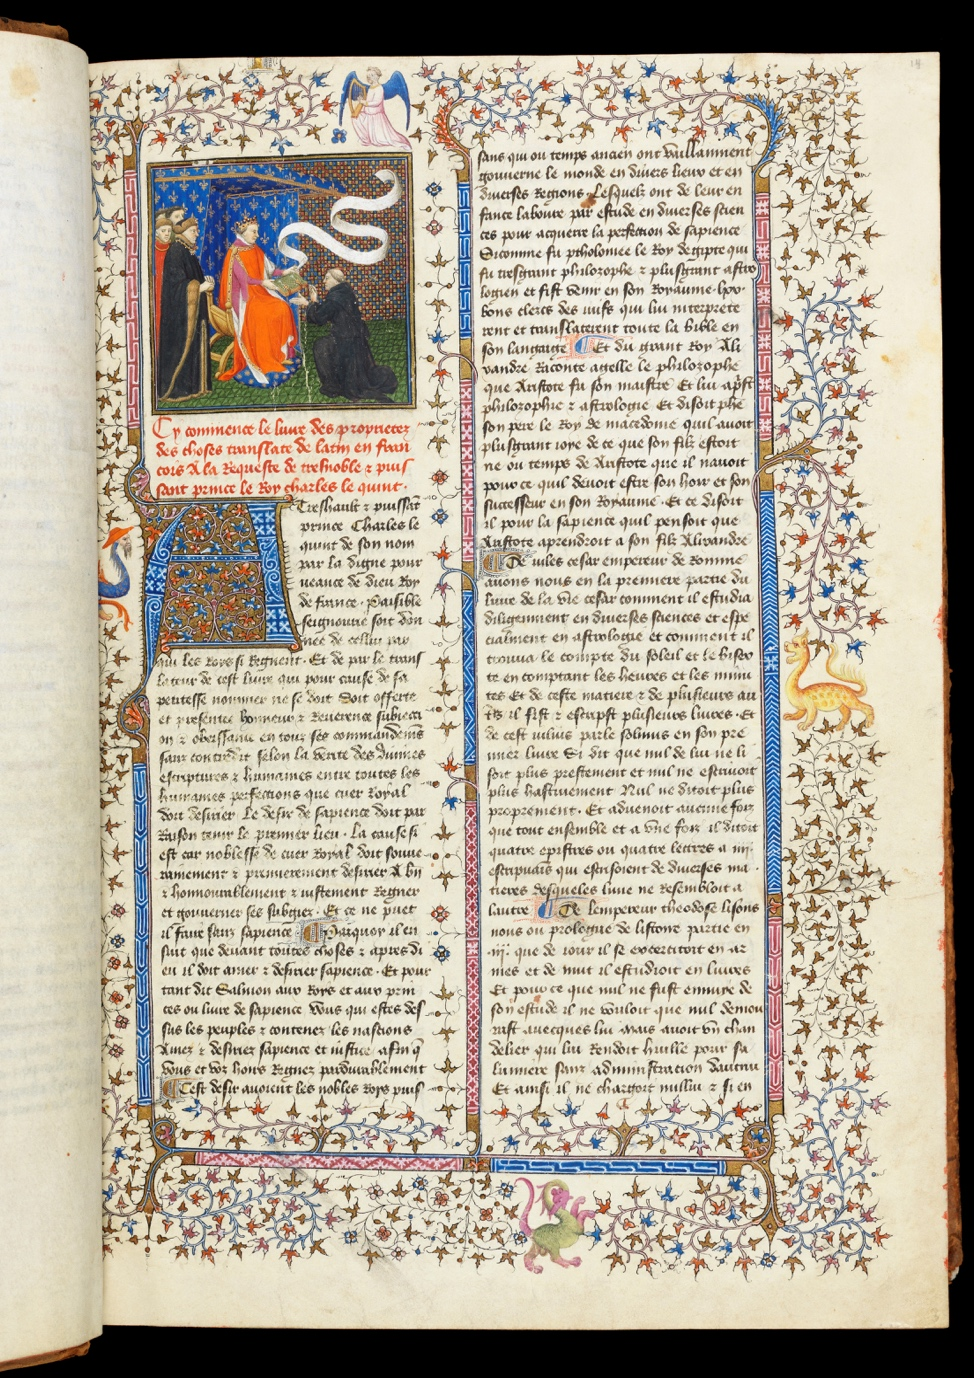 Cy commence le livre des proprietez
des choses translate de latin en fran
cois A la Requeste de tresnoble ⁊ puis
sant prince le Roy charles le quint ·
A Treshault ⁊ puissāt
prince Charles le
quint de son nom
par la digne pour
veance de dieu Roy
de france · Paisible
seignourie soit don
nee de cellui par
qui les Roys si Regnent · Et de par le trans
lateur de cest livre qui pour cause de sa
petitesse nommer ne se doit Soit offerte
et presentee honneur ⁊ Reverence subiecti
on ⁊ obeissance en tous ses commandemēs
sanz contredit selon la verite des diuines
escriptures ⁊ humaines entre toutes les
humaines perfections que cuer Royal
doit desirer Le desir de sapience doit par
Raison tenir le premier lieu · La cause si
est car noblesse de cuer Royal doit souue
rainement ⁊ premierement desirer A biē
⁊ honnourablement ⁊ iustement Regner
et gouuerner ses subgiez · Et ce ne puet
il faire sanz sapience Parquoy il en
suit que deuant toutes choses ⁊ apres di
eu il doit amer ⁊ desirer sapience · Et pour
tant dit Salmon aux Roys et aux prin
ces ou livre de sapience Vous qui estes des
sus les peuples ⁊ contenez les nascions
Amez ⁊ desirez sapience et iustice afin q̄
vous et voz hoirs Regnez pardurablement
Cest desir auoient les nobles Roys puis
sans qui ou temps ancien ont vaillanment
gouuerne le monde en diuers lieux et en
diuerses Regions · Lesquelz ont de leur en
fance laboure par estude en diuerses scien
ces pour acquerre la perfection de sapience
Sicomme fu ptholomee le Roy degipte qui
fu tresgrant philozophe ⁊ plusgrant astro
logien et fist venir en son Royaume · lxx ·
bons clercs des iuifs qui lui interprete
rent et translaterent toute la bible en
son langaige Et du grant Roy Ali
xandre Raconte agelle le philozophe
que Aristote fu son maistre Et lui aprīst
philozophie ⁊ astrologie Et disoit phē
son pere le Roy de macedoine quil auoit
plusgrant ioye de ce que son filz estoit
ne ou temps de Aristote que il nauoit
pour ce quil deuoit estre son hoir et son
successeur en son Royaume · Et ce disoit
il pour la sapience quil pensoit que
Aristote aprendroit a son filz Alixandre
De iules cesar empereur de Romme
auons nous en la premiere partie du
livre de la vie cesar comment il estudia
diligemment en diuerses sciences et espe
cialment en astrologie et comment il
trouua le compte du soleil et le bisex
te en comptant les heures et les minu
tes Et de ceste matiere ⁊ de plusieurs au
tēs il fist ⁊ escripst plusieurs liures · Et
de cest iulius parle solinus en son pre
mier livre Si dit que nul de lui ne li
soit plus prestement et nul ne escriuoit
plus hastiuement Nul ne ditoit plus
proprement · Et aduenoit aucune foiz
que tout ensemble et a vne foiz il ditoit
quatre epistres ou quatre lettres a iiij ·
escripuais qui escrisoient de diuerses ma ·
tieres desqueles lune ne Resembloit a
lautre De lempereur theodose lisons
nous ou prologue de listoire partie en
· iij · que de iour il se exercitoit en ar
mes et de nuit il estudioit en liures
Et pour ce que nul ne fust ennuye de
son estude il ne vouloit que nul demou
rast auecques lui mais auoit vn chan
delier qui lui Rendoit huille pour sa
lumiere sanz administracion dautrui
Et ainsi il ne chargoit nullui ⁊ si en